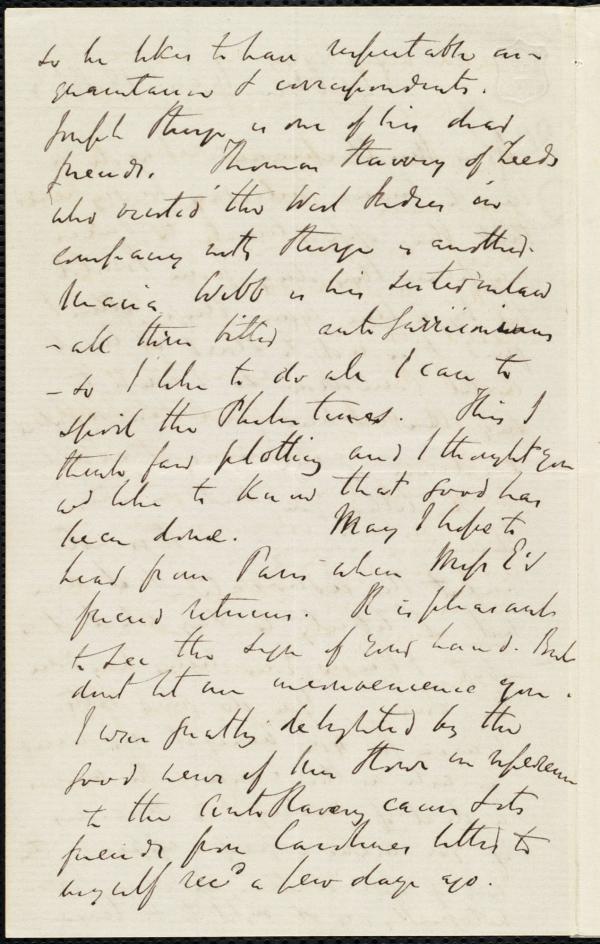 so he likes to have respectable ac-
quaintances & correspondents.
Joseph Sturge is one of his dear
friends. Thomas Harvey of Leeds
who visited the West Indies in
company with Sturge is another.
Maria Webb is his sister in law
- all three bitter anti Garrisonians
- so I like to do all I can to
spoil the Philistines. This I
think fair plotting and I thought you
wd like to know that good has
been done. May I hope to
hear from Paris when Miss E's
friend returns. It is pleasant
to see the sign of your hand. But
dont let me inconvenience you.
I was greatly delighted by the
good news of Mrs Stowe in reference
to the Anti Slavery cause & its
friends from Caroline's letter to
myself recd a few days ago.